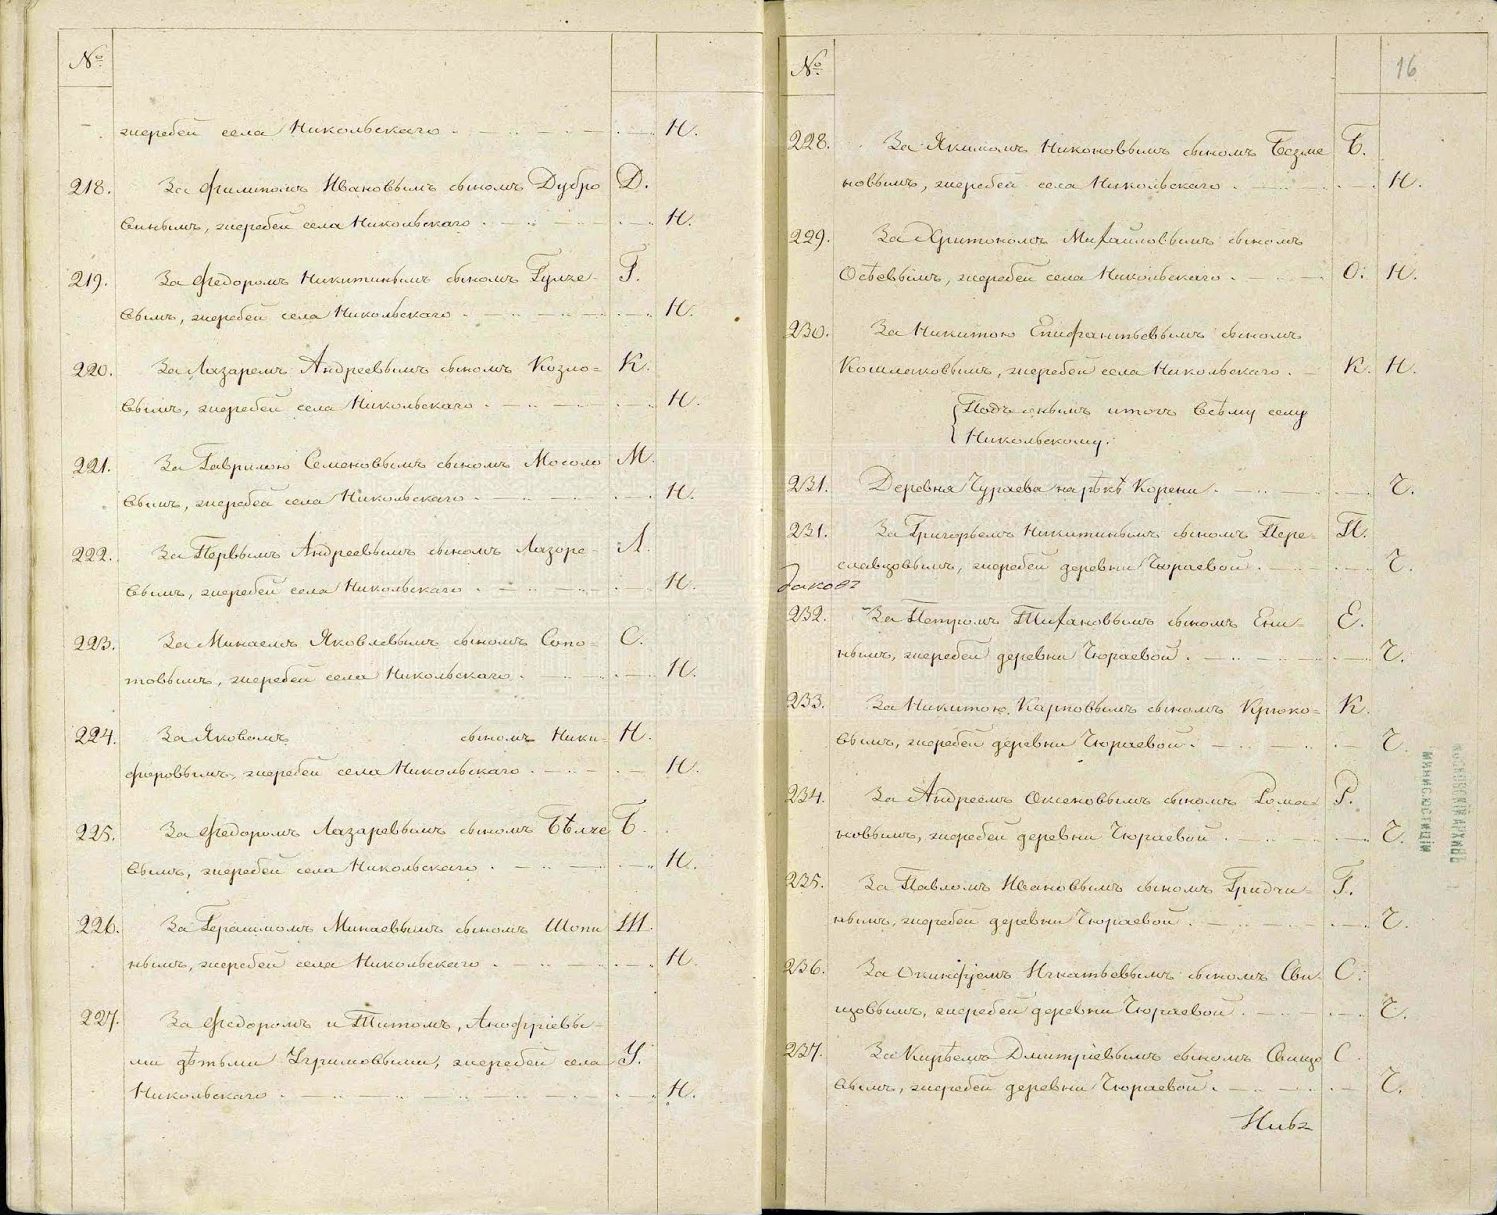 №
жеребей села Никольскаго . Н.
218. За Филипомъ Ивановымъ сыномъ Дубро Д.
винымъ, жеребей села Никольскаго . Н.
219. За Федоромъ Никитинымъ сыномъ Гулже- Г.
вымъ, жеребей села Никольскаго . Н.
220. За Лазаремъ Андреевымъ сыномъ Козло= К.
вымъ, жеребей села Никольскаго . Н.
221. За Гаврилою Семеновымъ сыномъ Мосоло М.
вымъ, жеребей села Никольскаго . Н.
222. За Первымъ Андреевымъ сыномъ Лазоре- Л.
вымъ, жеребей села Никольскаго . Н.
223. За Минаемъ Яковлевымъ сыномъ Сопо= С.
товымъ, жеребей села Никольскаго . Н.
224. За Яковомъ сыномъ Ники= Н.
форовымъ, жеребей села Никольскаго . Н.
225. За Федоромъ Лазаревымъ сыномъ Бѣлже Б.
вымъ, жеребей села Никольскаго . Н.
226. За Герасимомъ Минаевымъ сыномъ Шопи Ш.
нымъ, жеребей села Никольскаго . Н.
227. За Федоромъ и Титомъ, Анофріевы-
ми дѣтьми Угримовыми, жеребей села У.
Никольскаго . Н.
№ 16
228. За Якимомъ Никоновымъ сыномъ Безме Б.
новымъ, жеребей села Никольскаго . Н.
229. За Харитономъ Михайловымъ сыномъ
Осѣевымъ, жеребей села Никольскаго . О. Н.
230. За Никитою Епифантьевымъ сыномъ
Кошлаковымъ, жеребей села Никольскаго . К. Н.
{Подъ онымъ итогъ всѣму селу
Никольскому.
231. Деревня Чураева на рѣкѣ Корени . Ч.
231. За Григорьемъ Никитинымъ сыномъ Пере- П.
славцовымъ, жеребей деревни Чюраевой . Ч.
Заковъ
232. За Петромъ Тихановымъ сыномъ Ени- Е.
нымъ, жеребей деревни Чюраевой . Ч.
233. За Никитою Карповымъ сыномъ Крюко= К.
вымъ, жеребей деревни Чюраевой . Ч.
234. За Андреемъ Оксеновымъ сыномъ Рома= Р.
новымъ, жеребей деревни Чюраевой . Ч.
235. За Павломъ Ивановымъ сыномъ Гридчи- Г.
нымъ, жеребей деревни Чюраевой . Ч.
236. За Окинфіемъ Игнатьевымъ сыномъ Сви- С.
щовымъ, жеребей деревни Чюраевой . Ч.
237. За Кирѣемъ Дмитріевымъ сыномъ Свищо С.
вымъ, жеребей деревни Чюраевой . Ч.
МОСКОВСКІЙ АРХИВЪ
МИНИС. ЮСТИЦІИ